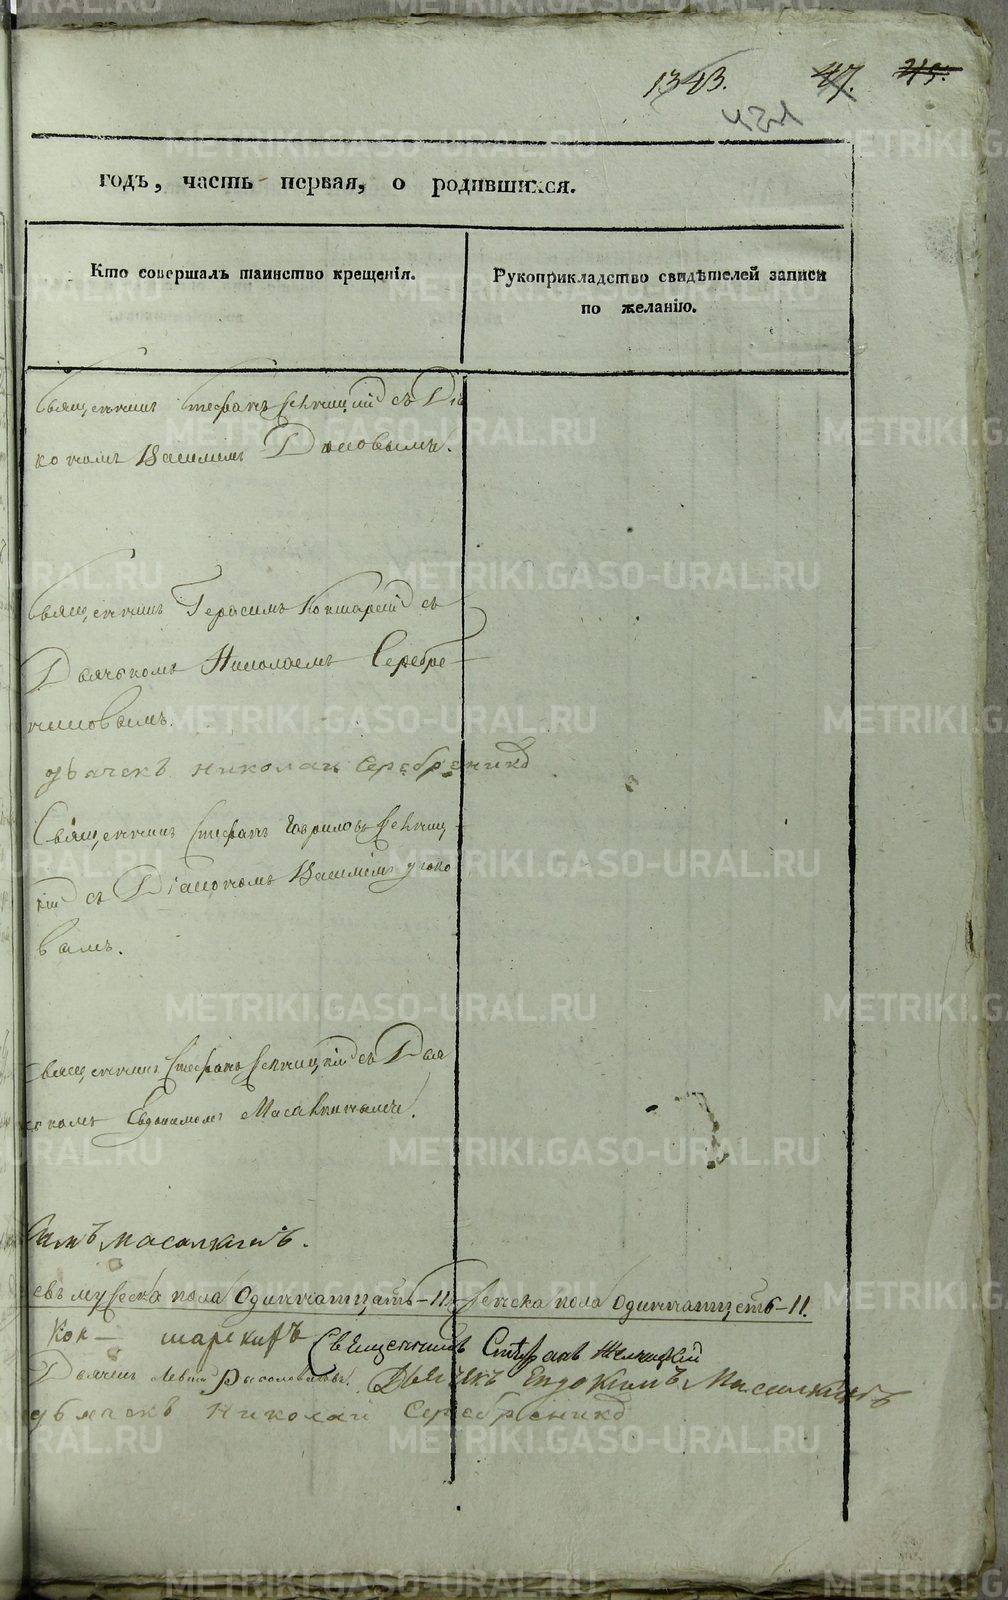 1343. 47. 215.
годъ, часть первая, о родившихся.
Кто совершалъ таинство крещенія.
Рукоприкладство свидѣтелей записи
по желанію.
Священникъ Стефанъ съ Дья
кономъ Василіемъ
Священникъ Герасимъ Кокшарскій съ
Дьячкомъ Николаемъ Серебре-
никовымъ.
дьячекъ николай серебрѣнико
Священникъ Стефанъ Гавриловъ
кій съ Діакономъ Василіемъ
вымъ.
Священникъ Стефанъ съ Дья
чкомъ Евдокимомъ Масалкинымъ.
кимъ масалкинъ.
мужеска пола одиннатцать-11 женска пола одиннатцеть-11.
Кок- шарскихъ Священникъ Стефанъ Желницкій
Дьячекъ Евдокимъ Масалкинъ
дьячекъ николай серебрѣнико
METRIKI.GASO-URAL.RU